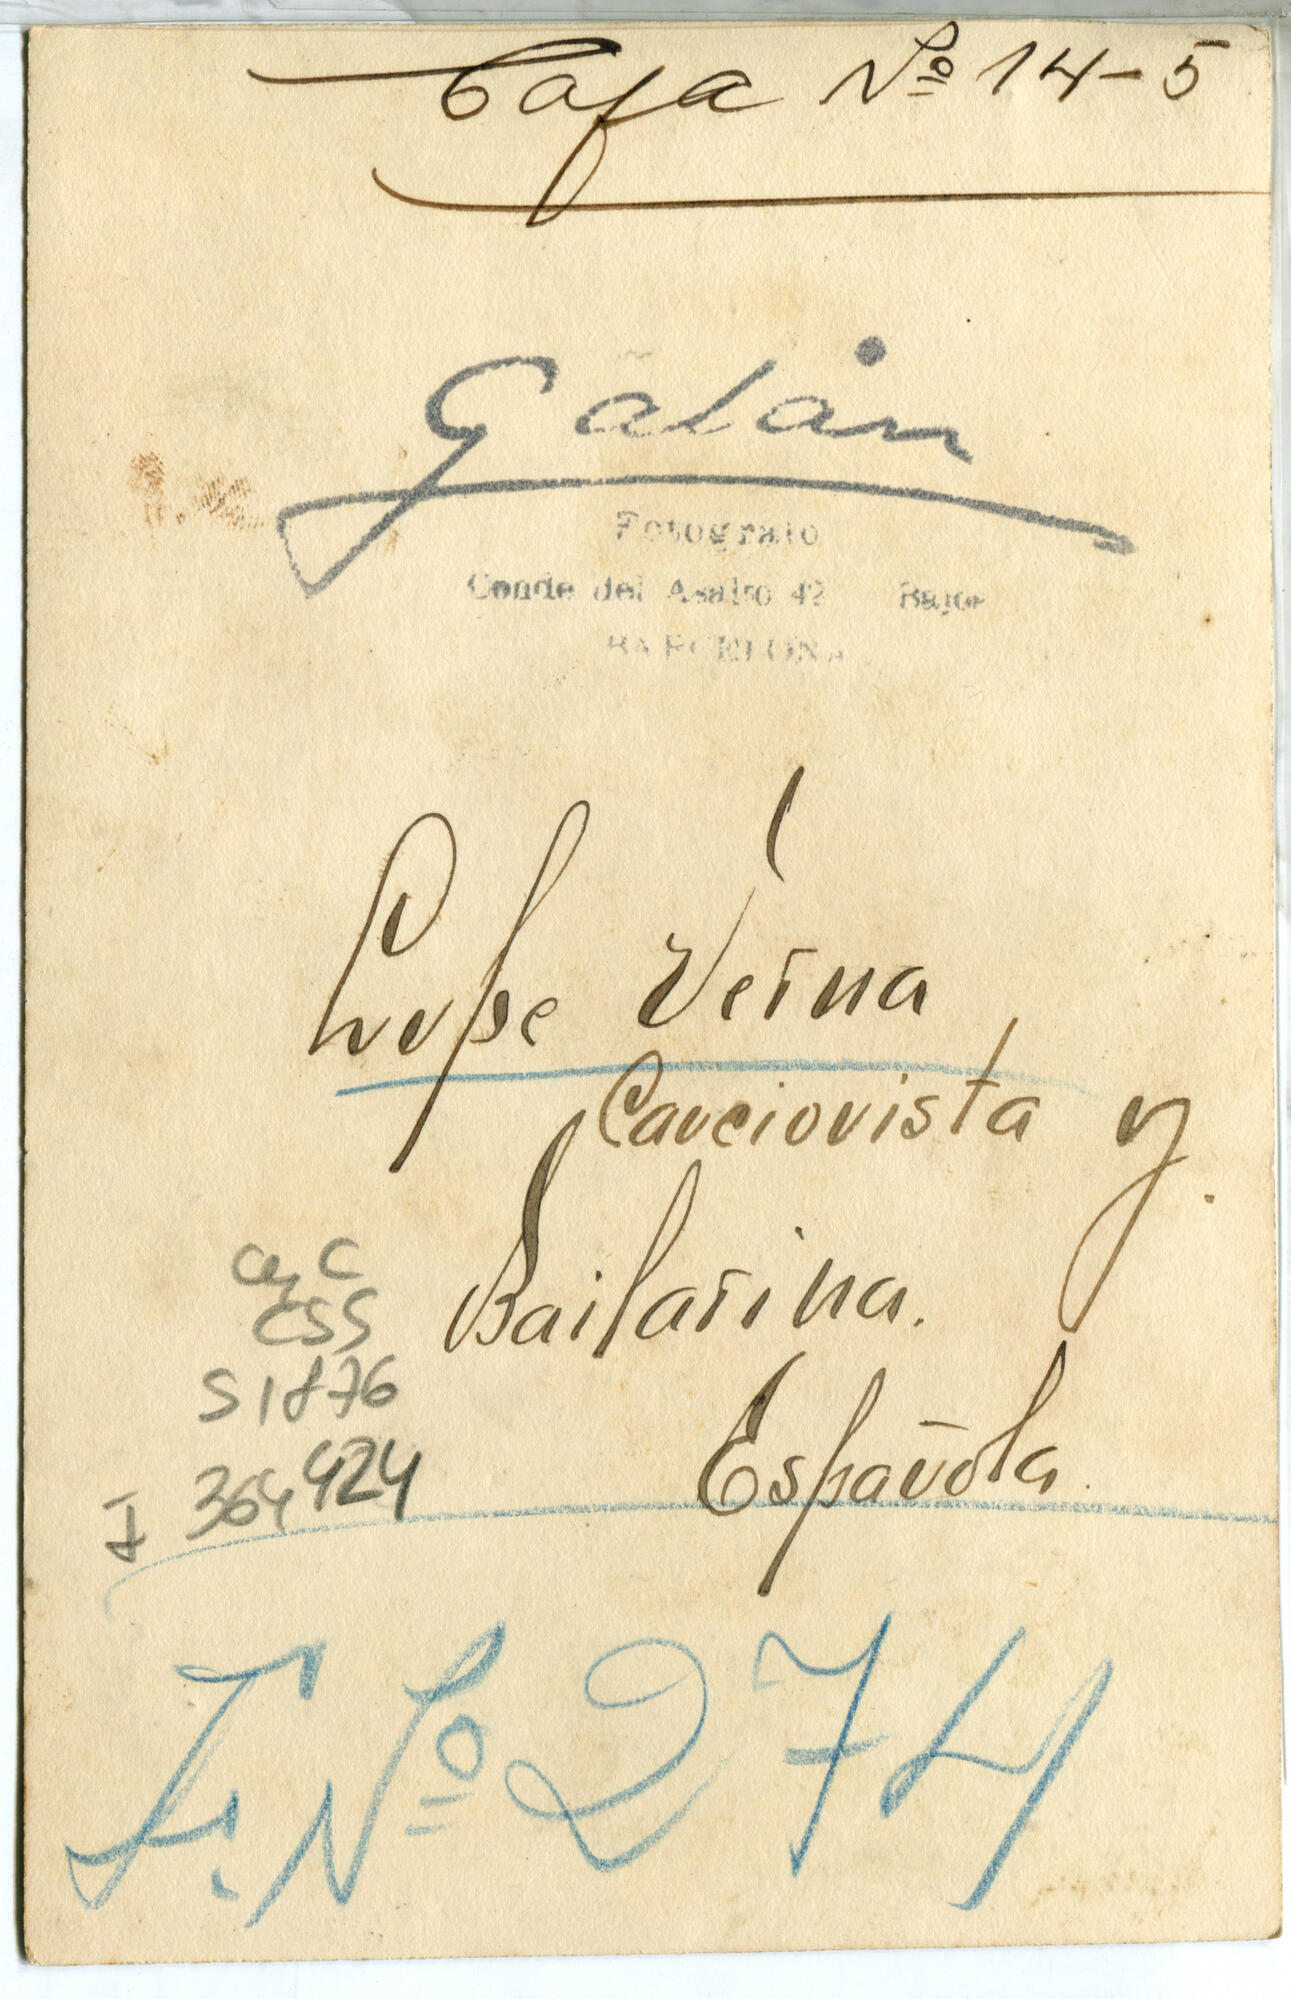 Caja Nº 14-5
Galán
Fotografo
Conde del Asalto 42 Bajos
BARCELONA
Lupe Verna
Cancionista y
Bailarina.
Española.
C
CSS
S 1876
I 364 424
F. Nº 274